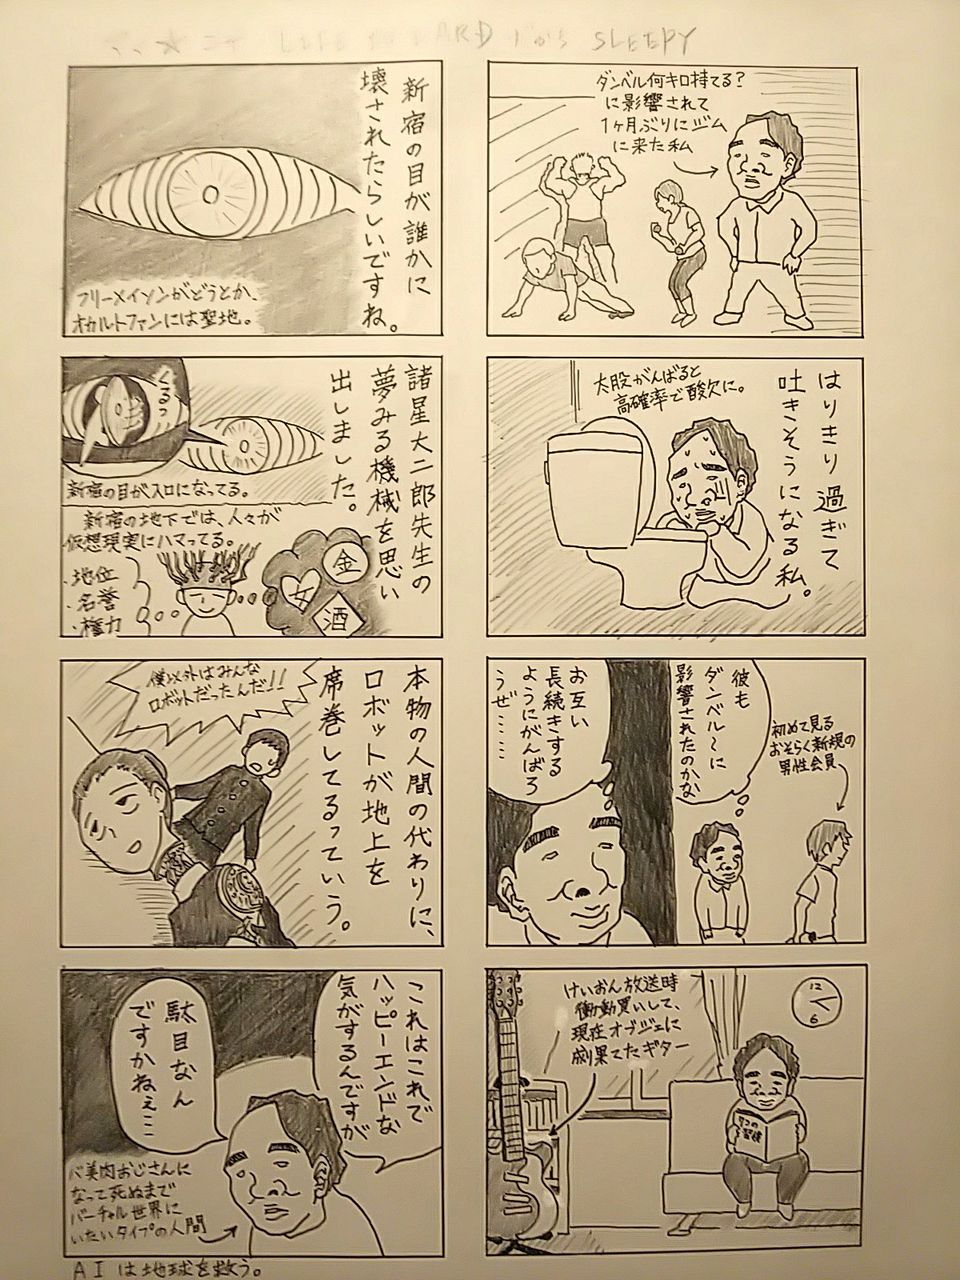 LIFE IS HARD だから SLEEPY
ダンベル何キロ持てる?
に影響されて
1ヶ月ぶりにジム
に来た私
はりきり過ぎて
吐きそうになる私。
大股がんばると
高確率で酸欠に。
初めて見る
おそらく新規の
男性会員
彼も
ダンベル~に
影響されたのかな
お互い
長続きする
ようにがんばろ
うぜ……
けいおん放送時
衝動買いして、
現在オブジェに
成り果てたギター
12
6
7つの
習慣
新宿の目が誰かに
壊されたらしいですね。
フリーメイソンがどうとか、
オカルトファンには聖地。
諸星大二郎先生の
夢みる機械を思い
出しました。
くるっ
新宿の目が入口になってる。
新宿の地下では、人々が
仮想現実にハマってる。
・地位
・名誉
・権力
金
女
酒
本物の人間の代わりに、
ロボットが地上を
席巻してるっていう。
僕以外はみんな
ロボットだったんだ!!
これはこれで
ハッピーエンドな
気がするんですが
駄目なん
ですかねぇ…
バ美肉おじさんに
なって死ぬまで
バーチャル世界に
いたいタイプの人間
AIは地球を救う。